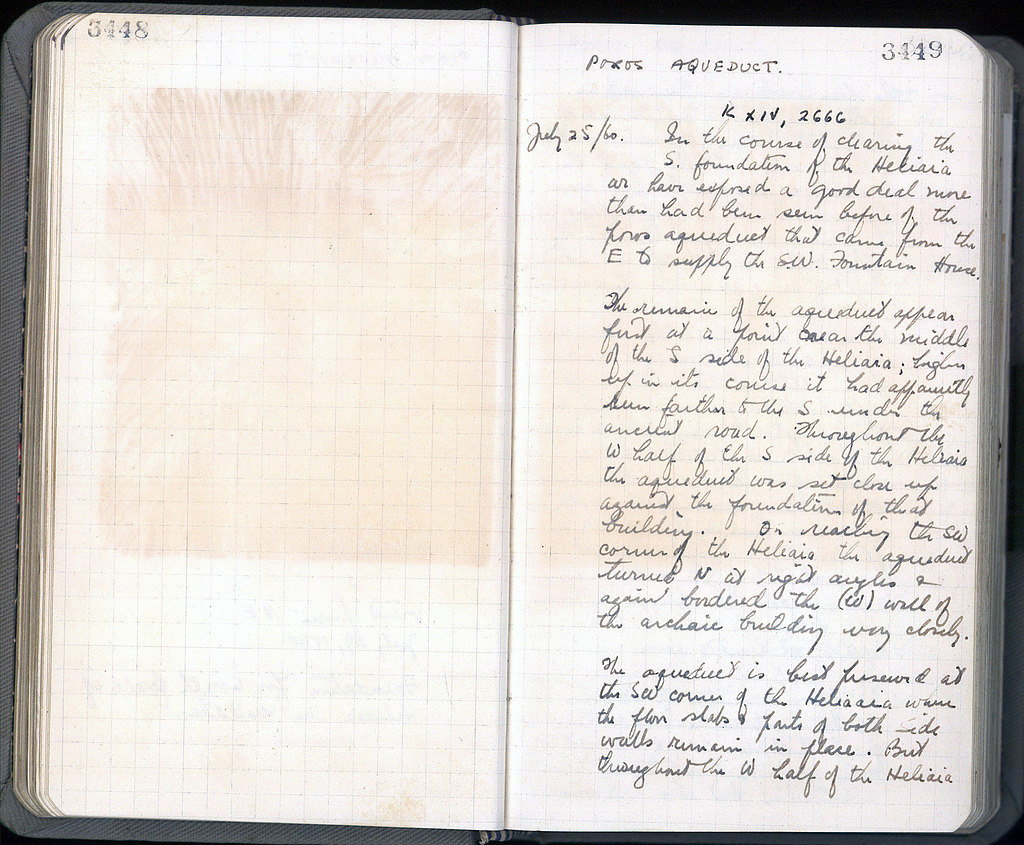 3448
3449
POROS AQUEDUCT.
K XIV, 2666
July 25/60. In the course of clearing the
S. foundation of the Heliaia
we have exposed a good deal more
than had been seen before of the
poros aqueduct that came from the
E to supply the SW. Fountain House.
The remains of the aqueduct appear
first at a point near the middle
of the S side of the Heliaia; higher
up in its course it had apparently
run farther to the S under the
ancient road. Throughout the
W half of the S side of the Heliaia
the aqueduct was set close up
against the foundation of that
building. On reaching the SW
corner of the Heliaia the aqueduct
turned N at right angles &
again bordered the (W) wall of
the archaic building very closely.
The aqueduct is best preserved at
the SW corner of the Heliaia where
the floor slabs & parts of both side
walls remain in place. But
throughout the W half of the Heliaia